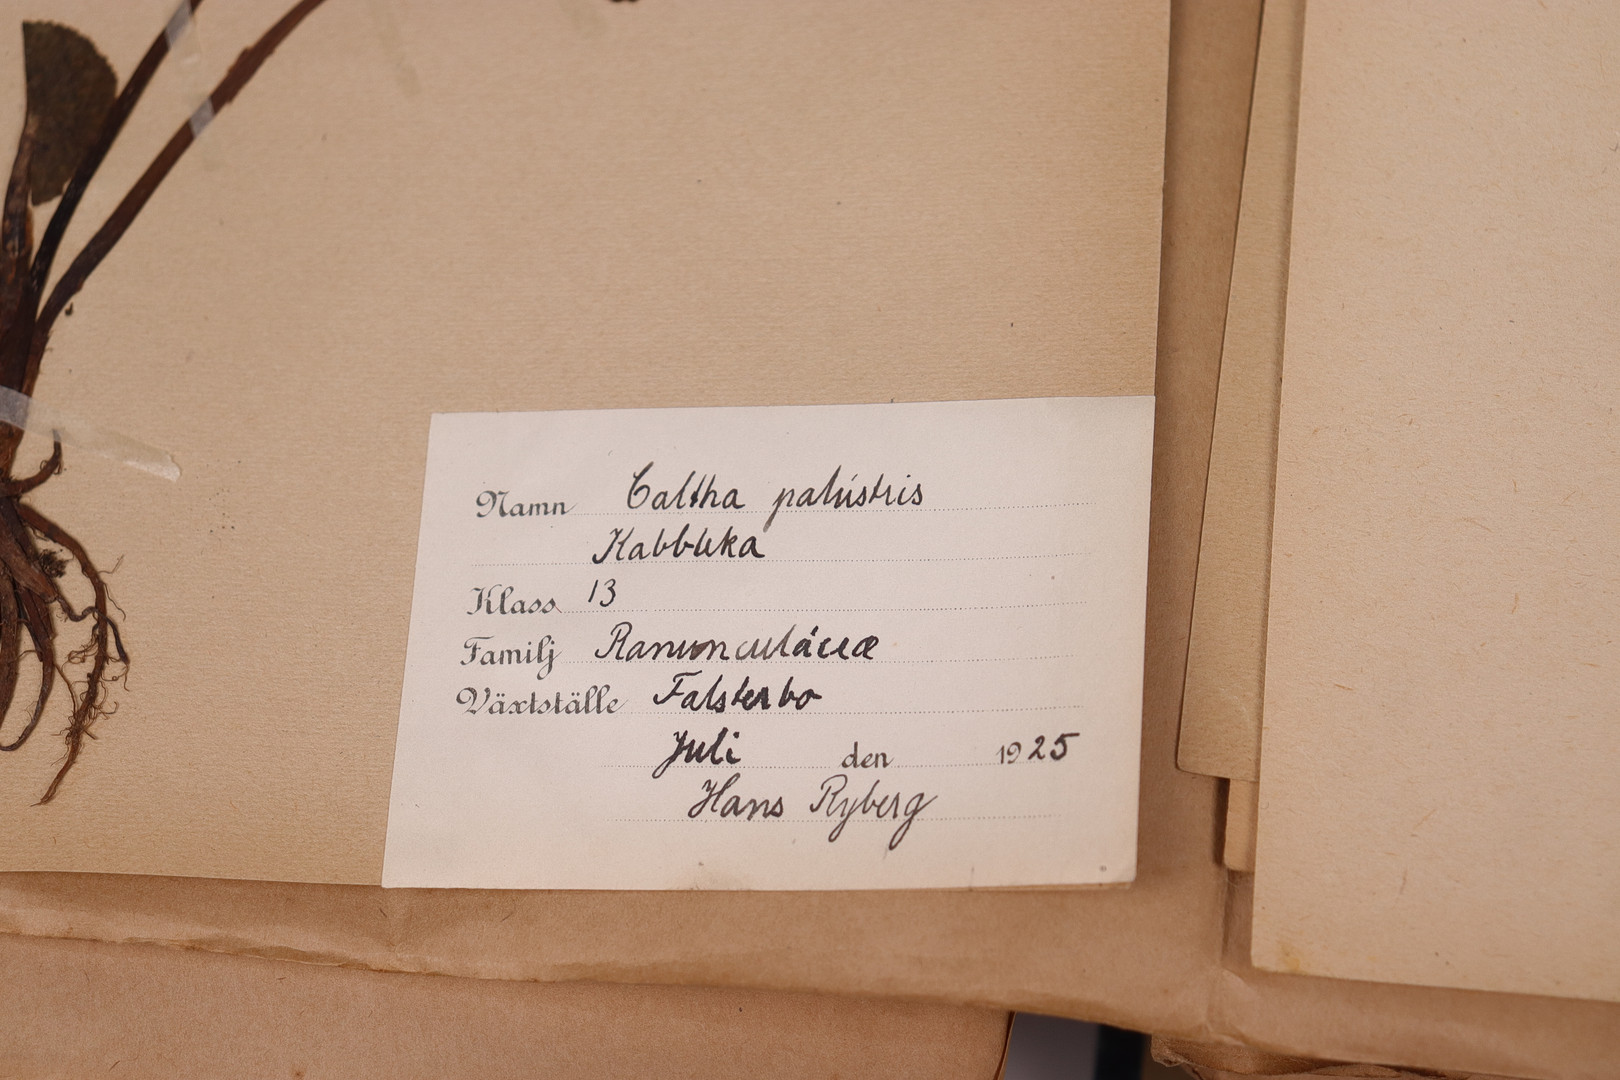 Namn Caltha palústris
Kabbleka
Klass 13
Familj Ranunculáceæ
Växtställe Falsterbo
Juli den 1925
Hans Ryberg